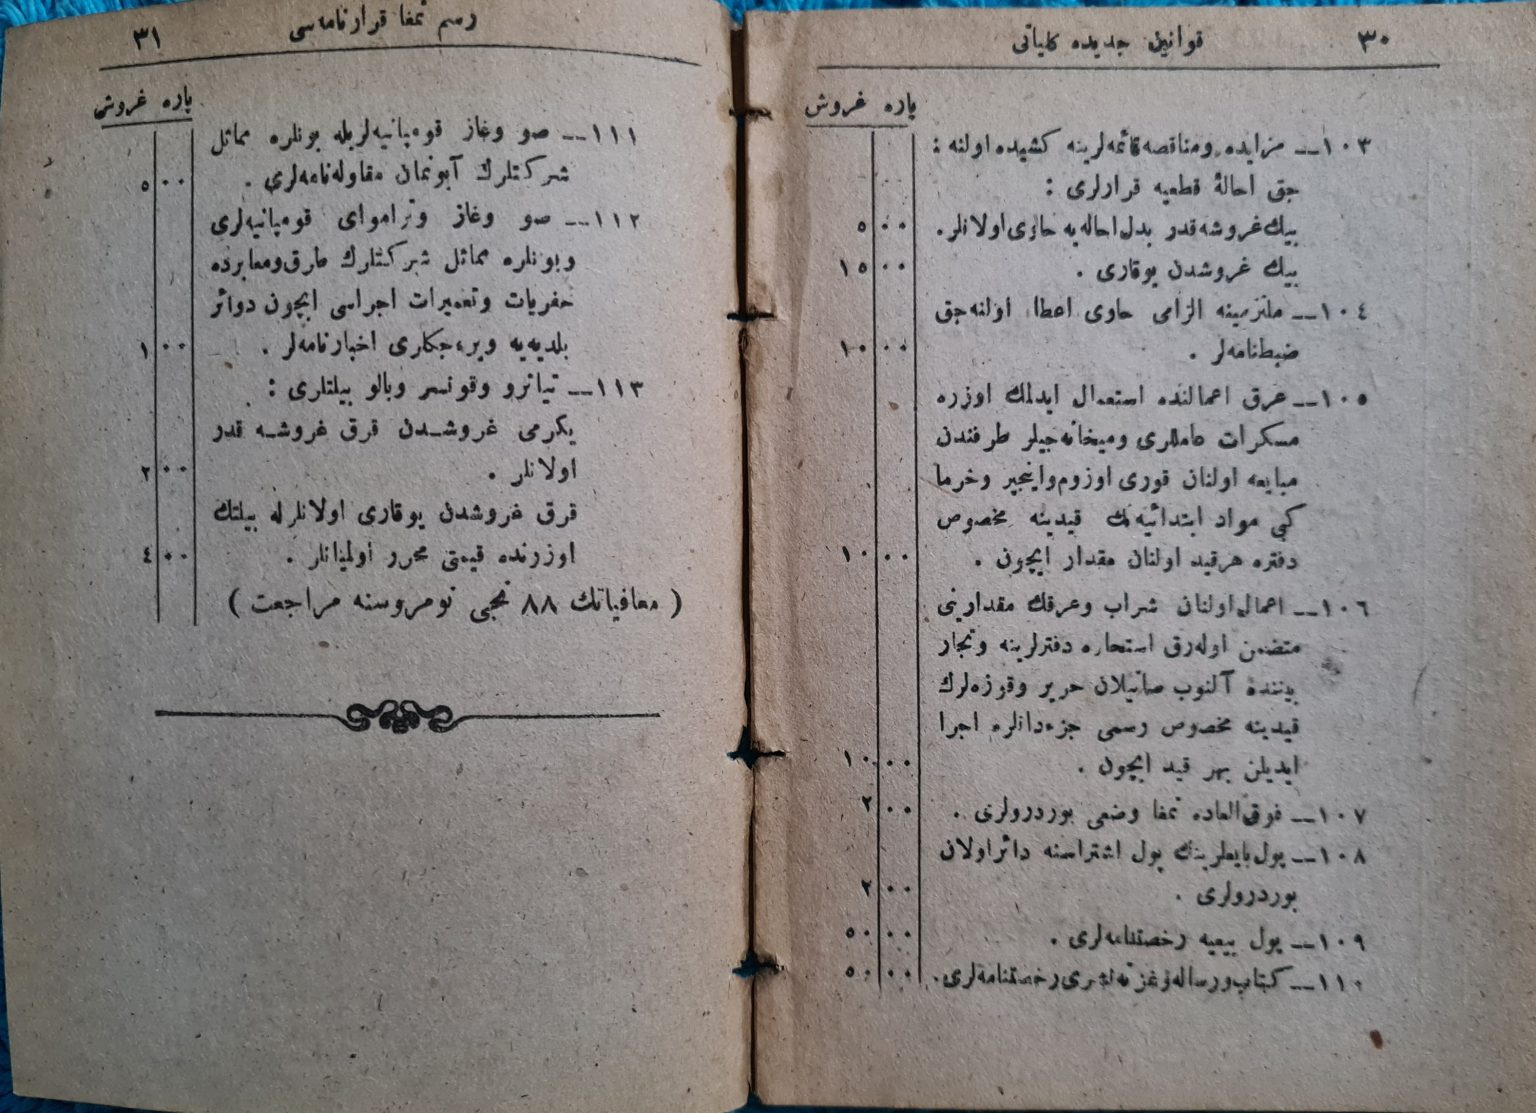 ٣٠ قوانین جدیده كلیاتی
پاره غروش
١٠٣ــ مزایده ومناقصه قائمه‌لرینه كشیده اولنه‌:
جق احالۀ قطعیه قرارلری :
بیك غروشه قدر بدل احاله‌یه حاوی اولانلر. ٠٠ ٥
بیك غروشدن یوقاری . ٠٠ ١٥
١٠٤ــ ملتزمینه الزامی حاوی اعطا اولنه‌جق
ضبطنامه‌لر . ٠٠ ١٠
١٠٥ــ عرق اعمالنده استعمال ایدلمك اوزره
مسكرات عاملاری ومیخانه‌جیلر طرفندن
مبایعه اولنان قوری اوزوم‌واینجیر وخرما
كبی مواد ابتدائیه‌نك قیدینه مخصوص
دفتره هرقید اولنان مقدار ایچون . ٠٠ ١٠
١٠٦ــ اعمال‌اولنان شراب وعرقك مقدارینی
متضمن اوله‌رق استحاره دفترلرینه وتجار
بیننده آلنوب صاتیلان حریر وقوزه‌لرك
قیدینه مخصوص رسمی جزءدانلره اجرا
ایدیلن بهر قید ایچون . ٠٠ ١٠
١٠٧ــ فوق‌العاده تمغا وضعی بوردرولری . ٠٠ ٢
١٠٨ــ پول‌بایعلرینك پول اشتراسنه دائراولان
بوردرولری . ٠٠ ٢
١٠٩ــ پول بیعیه رخصتنامه‌لری . ٠٠ ٥٠
١١٠ــ كتاب‌ورساله‌وغزته‌نشری رخصتنامه‌لری. ٠٠ ٥٠
رسم تمغا قرارنامه‌سی ٣١
پاره غروش
١١١ــ صو وغاز قومپانیه‌لریله بونلره مماثل
شركتلرك آبونمان مقاوله‌نامه‌لری . ٠٠ ٥
١١٢ــ صو وغاز وتراموای قومپانیه‌لری
وبونلره مماثل شركتلرك طرق‌ومعابرده
حفریات وتعمیرات اجراسی ایچون دوائر
بلدیه‌یه ویره‌جكلری اخبارنامه‌لر . ٠٠ ١
١١٣ــ تیاترو وقونسر وبالو بیلتلری :
یكرمی غروشدن قرق غروشه قدر
اولانلر . ٠٠ ٢
قرق غروشدن یوقاری اولانلرله بیلتك
اوزرنده قیمتی محرر اولمیانلر . ٠٠ ٤
( معافیاتك ٨٨ نجی نومروسنه مراجعت )